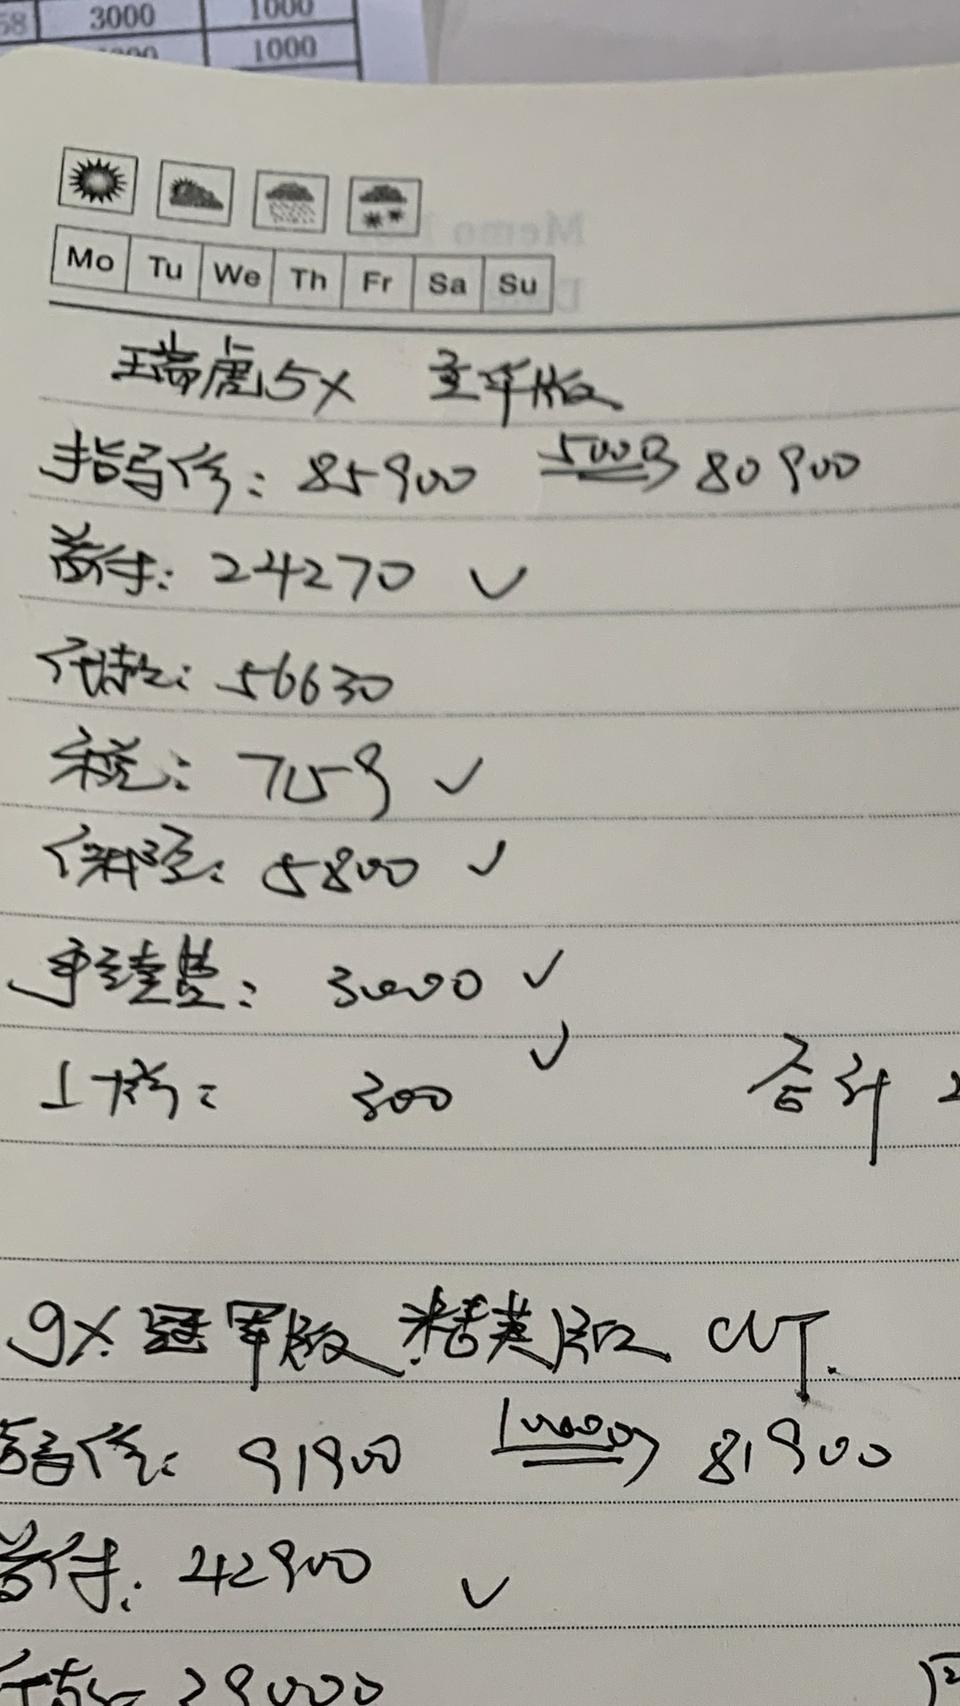 58 3000 1000
1000
Mo Tu We Th Fr Sa Su
瑞虎5X
指导价: 85900 5000 80900
首付: 24270 ✓
贷款: 56630
税: 7159 ✓
保险: 5800 ✓
手续费: 3000 ✓
上牌: 300 ✓ 合计
冠军版 精英版 CVT.
指导价: 91900 10000 81900
首付: 42900 ✓
贷款 39000